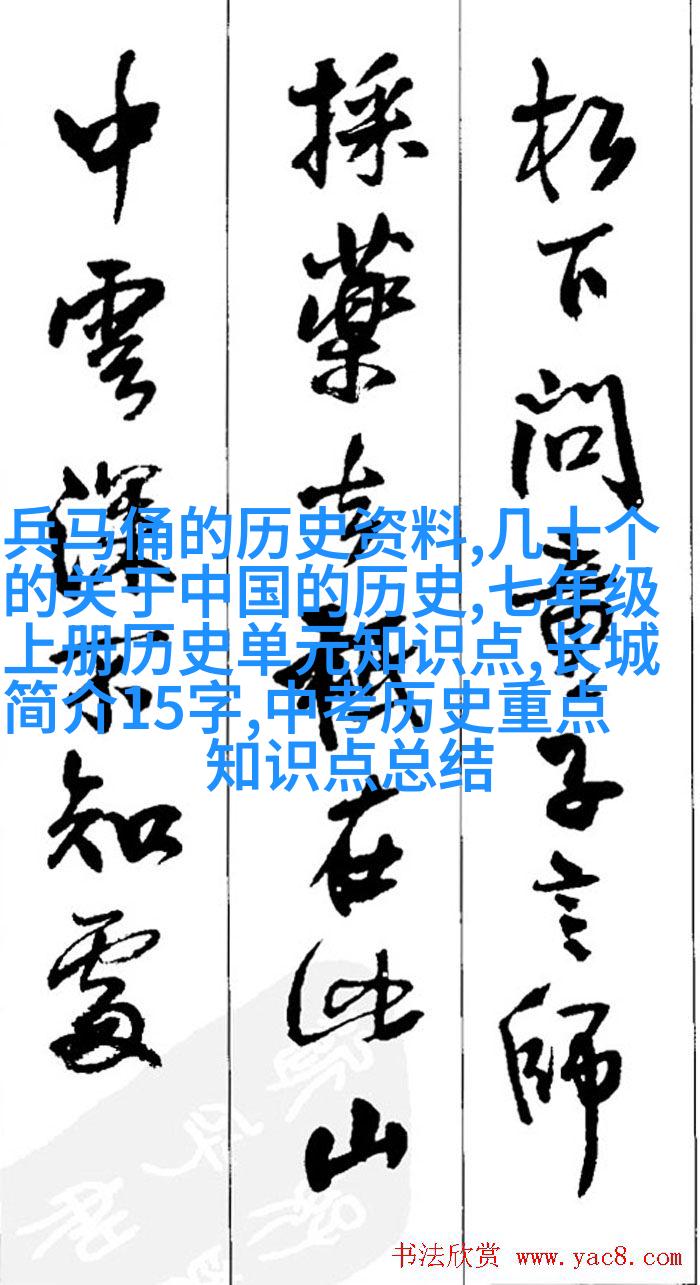 松下問童子言師
採藥去秖在此山
中雲深不知處
兵马俑的历史资料,几十个
的关于中国的历史,七年级
上册历史单元知识点,长城
简介15字,中考历史重点
知识点总结
书法欣赏 www.yac8.com